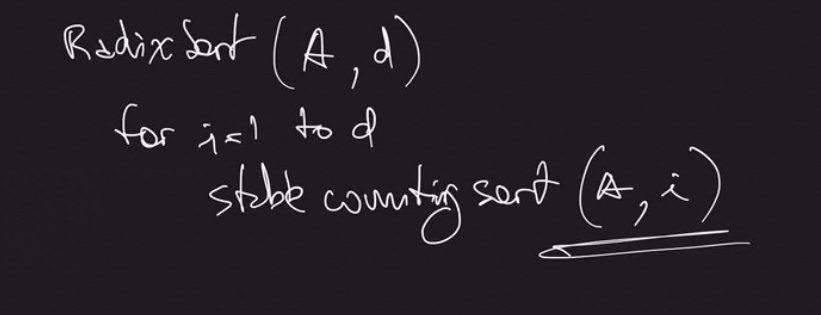 Radix Sort (A, d)
for i=1 to d
stable counting sort (A, i)